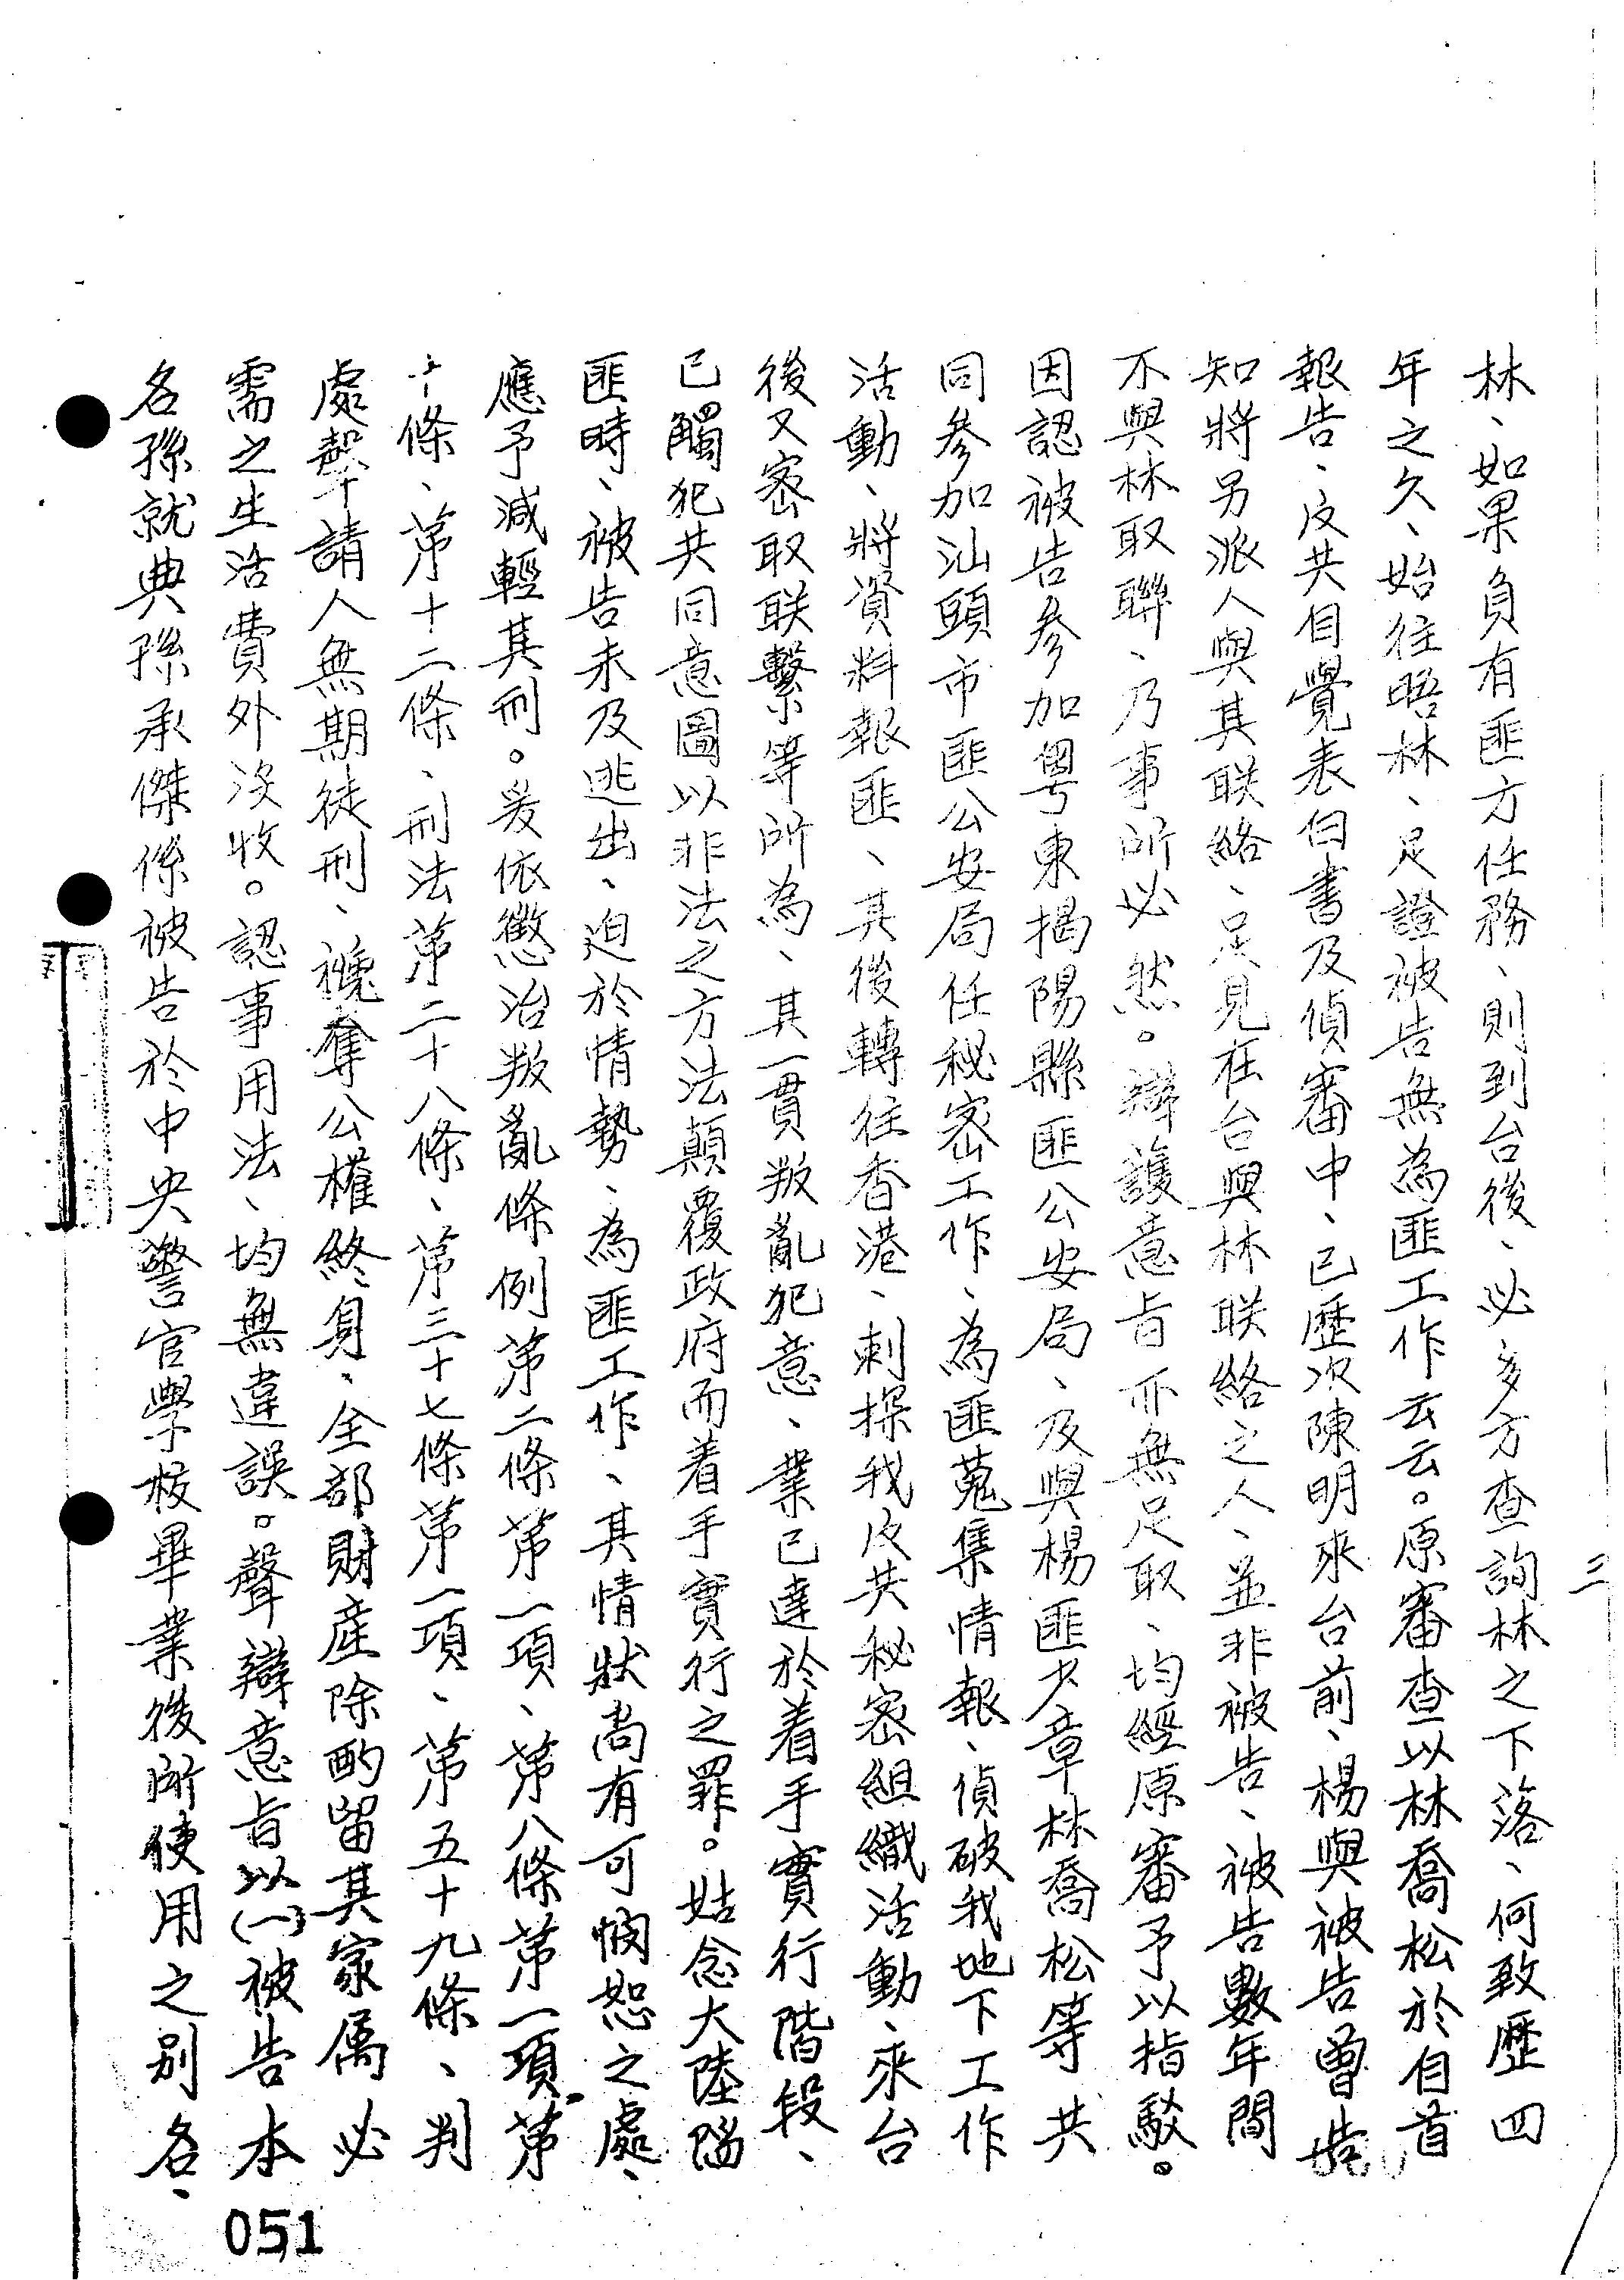 三
林、如果負有匪方任務、則到台後、必多方查詢林之下落、何致歷四
年之久、始往晤林、足證被告無為匪工作云云。原審查以林喬松於自首
報告、反共自覺表白書及偵審中、已歷次陳明來台前、楊與被告曾告
知將另派人與其联絡、足見在台與林联絡之人、並非被告、被告數年間
不與林取聯、乃事所必然。辯護意旨亦無足取、均經原審予以指駁。
因認被告參加粵東揭陽縣匪公安局、及與楊匪少章林喬松等共
同參加汕頭市匪公安局任秘密工作、為匪蒐集情報、偵破我地下工作
活動、將資料報匪、其後轉往香港、刺探我反共秘密組織活動、來台
後又密取联繫等所為、其一貫叛亂犯意、業已達於着手實行階段、
已觸犯共同意圖以非法之方法顛覆政府而着手實行之罪。姑念大陸陷
匪時、被告未及逃出、迫於情勢、為匪工作、其情狀尚有可憫恕之處、
應予減輕其刑。爰依懲治叛亂條例第二條第一項、第八條第一項、第
十條、第十二條、刑法第二十八條、第三十七條第一項、第五十九條、判
處聲請人無期徒刑、褫奪公權終身、全部財產除酌留其家屬必
需之生活費外沒收。認事用法、均無違誤。聲辯意旨以(一)被告本
名孫就典孫承傑係被告於中央警官學校畢業後所使用之別名、
051